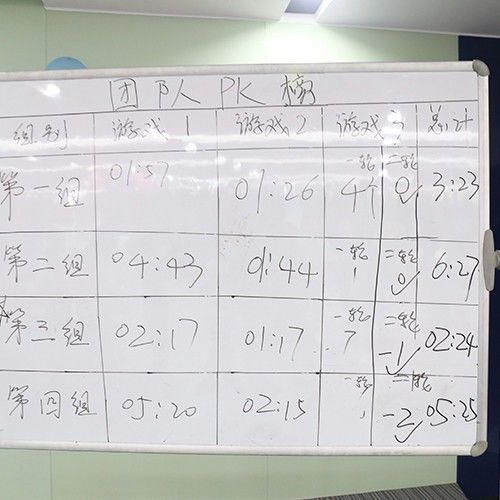 团队 PK 榜
组别 游戏1 游戏2 游戏3 总计
第一组 01:57 01:26 一轮 4个 二轮 0 3:23
第二组 04:43 01:44 一轮 1 二轮 0 6:27
第三组 02:17 01:17 一轮 7 二轮 -1 02:24
第四组 05:20 02:15 一轮 1 二轮 -2 05:25